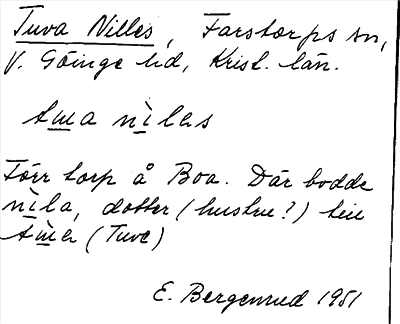 Tuva Nilles, Farstorps sn,
V. Göinge hd, Krist. län.
nilas
Förr torp å Boa. Där bodde
nila, dotter (hustru?) till
(Tuve)
E. Bergenrud 1951